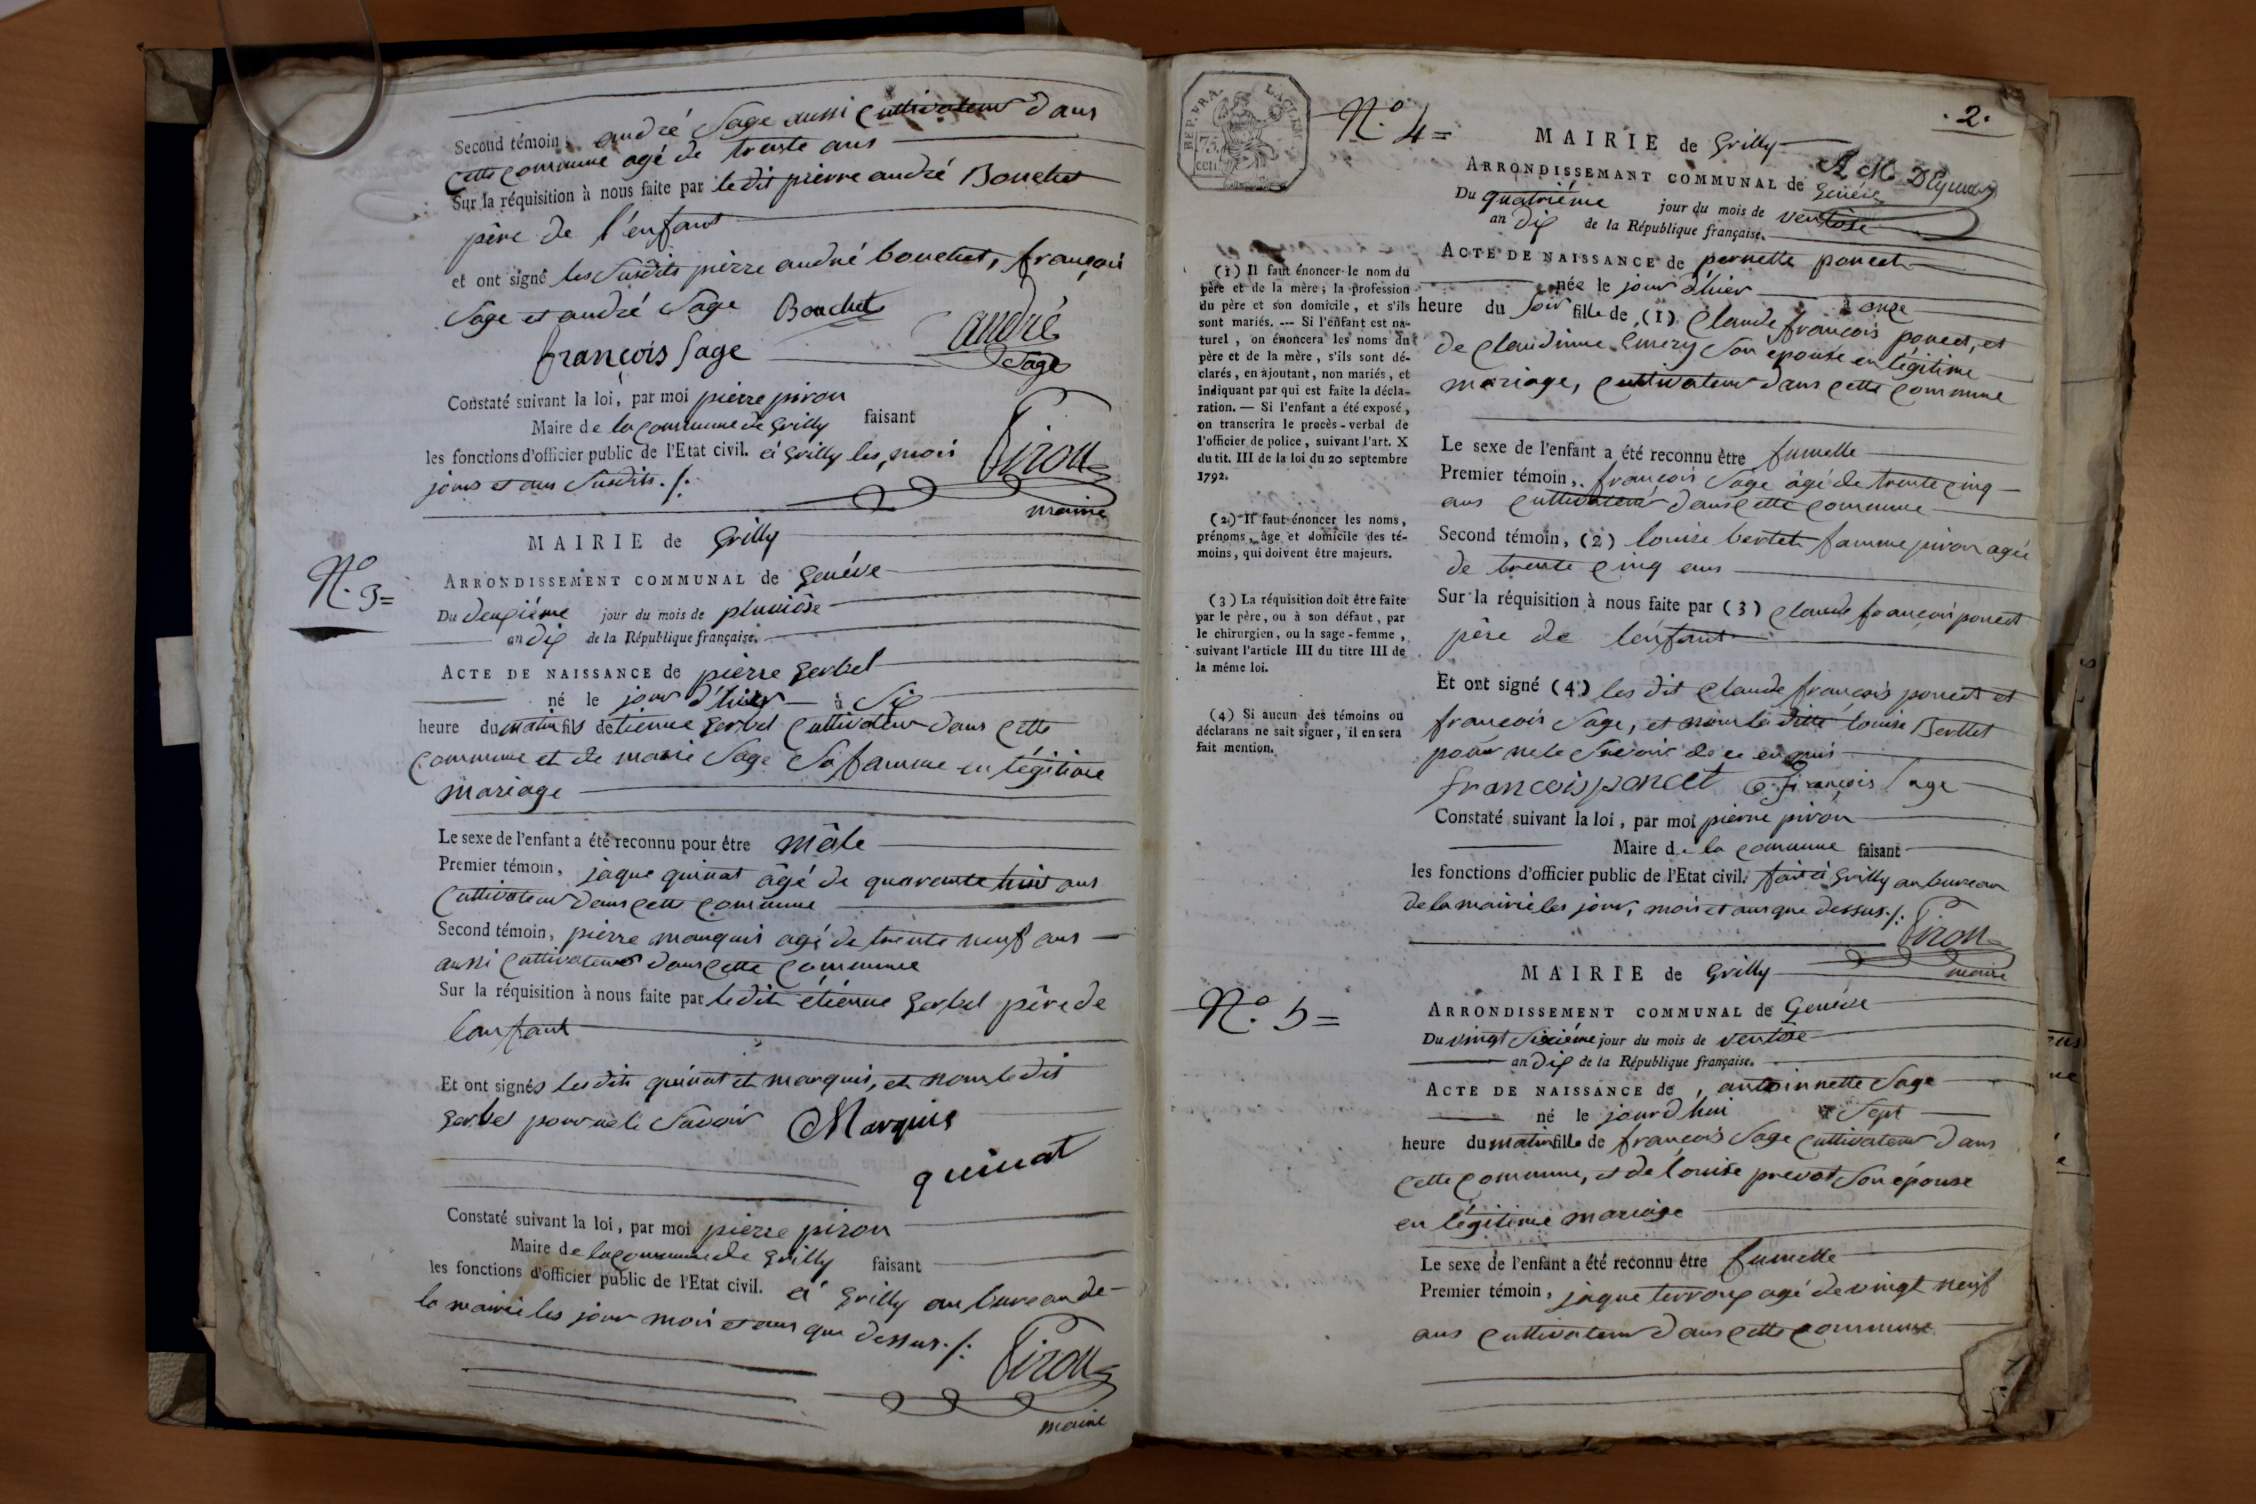 Second témoin, andré Sage aussi Cultivateur dans
Cette commune agé de trente ans
Sur la réquisition à nous faite par ledit pierre andré Bouchet
père de l'enfant
et ont signé les Susdits pièrre andré bouchet, françois
Sage et andré Sage Bouchet
françois Sage andré
Sage
Constaté suivant la loi, par moi pièrre piron
Maire de la Commune de Grilly faisant
les fonctions d'officier public de l'Etat civil. à Grilly les mois
jours et ans Susdits ./. Piron
maire
MAIRIE de Grilly
N.° 3=
ARRONDISSEMENT COMMUNAL de Genéve
Du deuxiéme jour du mois de pluviôse
an dix de la République française.
ACTE DE NAISSANCE de pièrre Gerbel
né le jour d'hier à Six
heure du matin fils detienne Gerbel Cultivateur dans Cette
Commune et de marie Sage Sa famme en légitime
mariage
Le sexe de l'enfant a été reconnu pour être mâle
Premier témoin, jaque quinat âgé de quarante huit ans
Cultivateur dans Cette Commune
Second témoin, pièrre marquis agé de trente neuf ans
aussi Cultivateur dans Cette Commune
Sur la réquisition à nous faite par ledit étienne Gerbel père de
lenfant
Et ont signés lesdits quinat et marquis, et non ledit
Gerbel pour ne le Savoir Marquis
quinat
Constaté suivant la loi, par moi pièrre piron
Maire de la Commune de Grilly faisant
les fonctions d'officier public de l'Etat civil. à Grilly au bureau de
la mairie les jour mois et ans que dessus ./.
Piron
maire
REP. FRA.
75
cen.
N.° 4=
.2.
MAIRIE de Grilly
ARRONDISSEMANT COMMUNAL de Genéve
Du quatriéme jour du mois de ventôse
an dix de la République française.
ACTE DE NAISSANCE de pernette poncet
née le jour d'hier à onze
heure du Soir fille de (1) Claude françois poncet, et
de Claudinne Emery Son épouse en légitime
mariage, Cultivateur dans Cette Commune
Le sexe de l'enfant a été reconnu être fumelle
Premier témoin, françois Sage âgé de trente Cinq
ans Cultivateur dans Cette Commune
Second témoin, (2) louise bertet famme piron agée
de trente Cinq ans
Sur la réquisition à nous faite par (3) Claude françois poncet
père de lenfant
Et ont signé (4) les dit Claude françois poncet et
françois Sage, et non la ditte louise Bertet
pour ne le Savoir de ce enquis
françois poncet françois Sage
Constaté suivant la loi, par moi pièrre piron
Maire de la Commune faisant
les fonctions d'officier public de l'Etat civil. fait à Grilly au bureau
de la mairie les jour, mois et ans que dessus ./.
Piron
maire
(1) Il faut énoncer le nom du
père et de la mère ; la profession
du père et son domicile, et s'ils
sont mariés. --- Si l'enfant est na-
turel, on énoncera les noms du
père et de la mère, s'ils sont dé-
clarés, en ajoutant, non mariés, et
indiquant par qui est faite la décla-
ration. — Si l'enfant a été exposé,
on transcrira le procès-verbal de
l'officier de police, suivant l'art. X
du tit. III de la loi du 20 septembre
1792.
(2) Il faut énoncer les noms,
prénoms, âge et domicile des té-
moins, qui doivent être majeurs.
(3) La réquisition doit être faite
par le père, ou à son défaut, par
le chirurgien, ou la sage-femme,
suivant l'article III du titre III de
la même loi.
(4) Si aucun des témoins ou
déclarans ne sait signer, il en sera
fait mention.
MAIRIE de Grilly
N.° 5=
ARRONDISSEMENT COMMUNAL de Genéve
Du vingt Sixiéme jour du mois de ventôse
an dix de la République française.
ACTE DE NAISSANCE de, antoinnette Sage
né le jourd'hui à Sept
heure du matin fille de françois Sage Cultivateur dans
Cette Commune, et de louise prevot Son épouse
en légitime mariage
Le sexe de l'enfant a été reconnu être fumelle
Premier témoin, jaque terroux agé de vingt neuf
ans Cultivateur dans Cette Commune